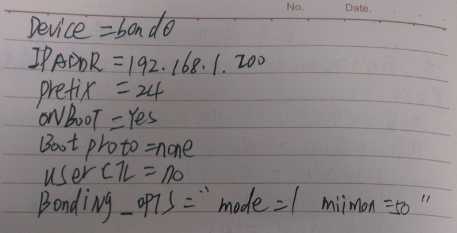 No. Date.
Device = bond0
IPADDR = 192.168.1.200
prefix = 24
ONBOOT = Yes
Boot proto = none
user CTL = no
Bonding_OPTS = " mode = 1 miimon = 50 "